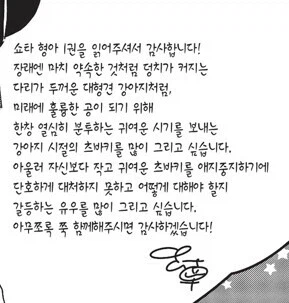 쇼타 형아 1권을 읽어주셔서 감사합니다!
장래엔 마치 약속한 것처럼 덩치가 커지는
다리가 두꺼운 대형견 강아지처럼,
미래에 훌륭한 공이 되기 위해
한창 열심히 분투하는 귀여운 시기를 보내는
강아지 시절의 츠바키를 많이 그리고 싶습니다.
아울러 자신보다 작고 귀여운 츠바키를 애지중지하기에
단호하게 대처하지 못하고 어떻게 대해야 할지
갈등하는 유우를 많이 그리고 싶습니다.
아무쪼록 쭉 함께해주시면 감사하겠습니다!